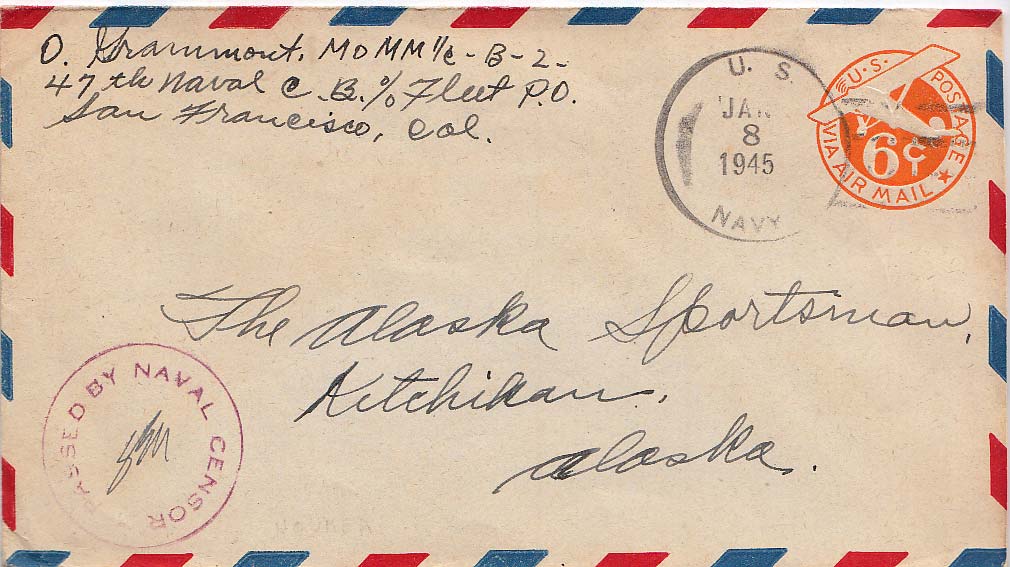 O. Grammont. MOMM1/c - B - 2 -
47th Naval C.B. % Fleet P.O.
San Francisco, Cal.
U. S.
JAN
8
1945
NAVY
U.S. POSTAGE
6¢
VIA AIR MAIL
The Alaska Sportsman,
Kitchikan,
Alaska.
PASSED BY NAVAL CENSOR